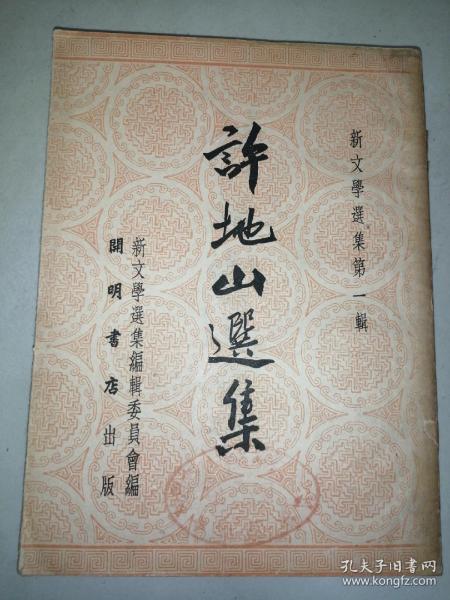 新文學選集第一輯
許地山選集
新文學選集編輯委員會編
開明書店出版
孔夫子旧书网
www.kongfz.com